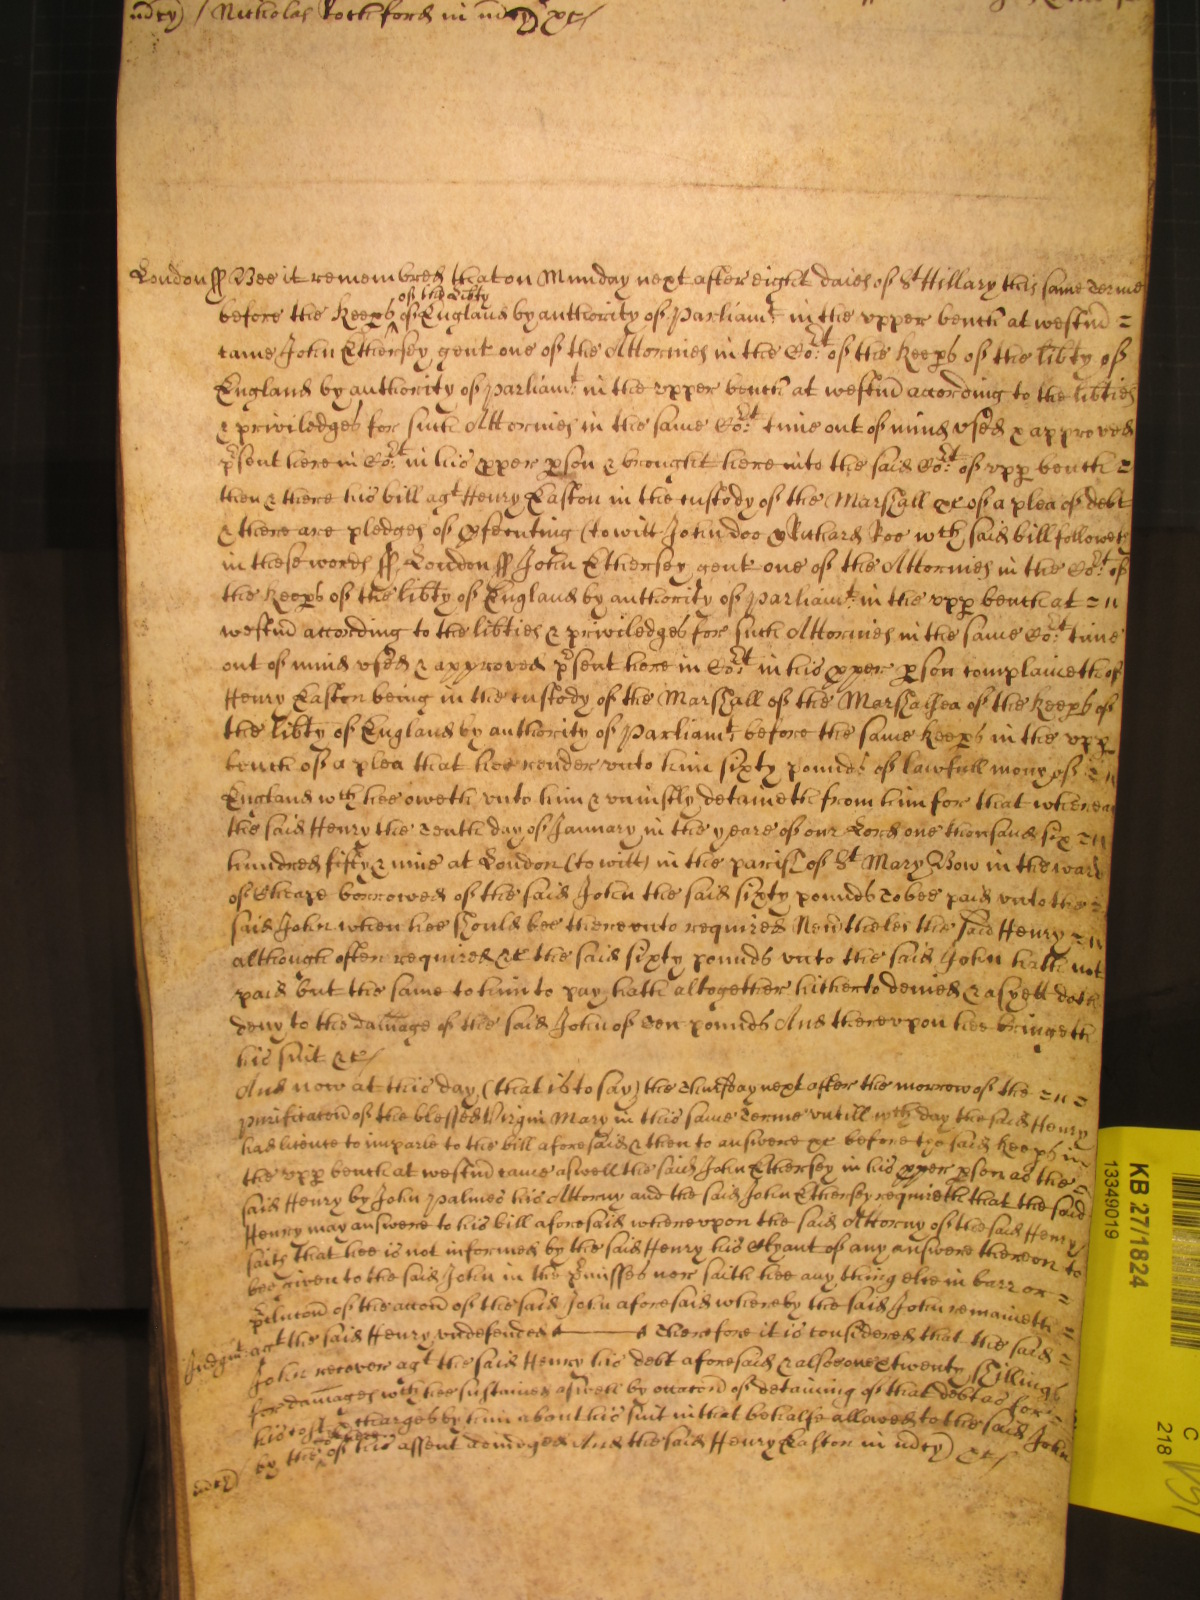 mcy) / Nicholas Rochford in mcy &c /
London ss Bee it remembred that on Munday next after eight daies of St Hillary this same Terme
of the Libty
before the Keeps of England by authority of Parliamt in the upper bench at Westmr =
came John Ethersey gent one of the Attornies in the Cort of the Keeps of the libty of
England by authority of parliamt in the upper bench at westmr according to the libties
& priviledges for such Attornies in the same Cort time out of mind vsed & approved
psent here in Cort in his pper pson & brought here into the said Cort of vpp bench =
then & there his bill agt Henry Easton in the custody of the Marshall &c of a plea of debt
& there are pledges of psecuting (to witt John Doo & Richard Roe wch said bill followeth
in these words ss London ss John Ethersey gent one of the Attornies in the Cort of
the Keeps of the libty of England by authority of parliamt in the vpp bench at =
westmr according to the libties & priviledges for such Attornies in the same Cort time
out of mind vsed & approved psent here in Cort in his pper pson complaineth of
Henry Easton being in the custody of the Marshall of the Marshalsea of the Keeps of
the libty of England by authority of Parliamt before the same Keeps in the vpp
bench of a plea that hee render vnto him sixty pounds of lawfull mony of =
England wch hee oweth vnto him & vniustly detaineth from him for that whereas
the said Henry the Tenth day of January in the yeare of our Lord one thousand six =
hundred fifty & nine at London (to witt) in the parish of St Mary Bow in the ward
of Cheape borrowed of the said John the said sixty pounds to bee paid vnto the =
said John when hee should bee therevnto required Nevtheles the said Henry =
although often required &c the said sixty pounds vnto the said John hath not
paid but the same to him to pay hath altogether hitherto denied & as yett doth
deny to the damage of the said John of Ten pounds And therevpon hee bringeth
his suit &c /
And now at this day (that is to say) the Thursday next after the morrow of the =
purificacon of the blessed Virgin Mary in this same Terme vntill wch day the said Henry
had licence to imparle to the bill aforesaid & then to answere &c before the said Keeps in
the vpp bench at westmr came aswell the said John Ethersey in his pper pson as the =
said Henry by John Palmes his Attorny and the said John Ethersey requireth that the said
Henry may answere to his bill aforesaid wherevpon the said Attorny of the said Henry
saith that hee is not informed by the said Henry his Clyant of any answere thereon to
bee given to the said John in the pmisses nor saith hee any thing else in barr or =
pclucon of the accon of the said John aforesaid whereby the said John remaineth =
Judgmt agt the said Henry vndefended Therefore it is considered that the said =
John recover agt the said Henry his debt aforesaid & alsoe twenty shillings
for damages wch hee sustained aswell by occacon of detaining of that debt as for =
his costs & charges by him about his suit in that behalfe allowed to the said John
by the of his assent adiudged And the said Henry Easton in mcy) &c /
mcy)
KB 27/1824
13349019
C
218